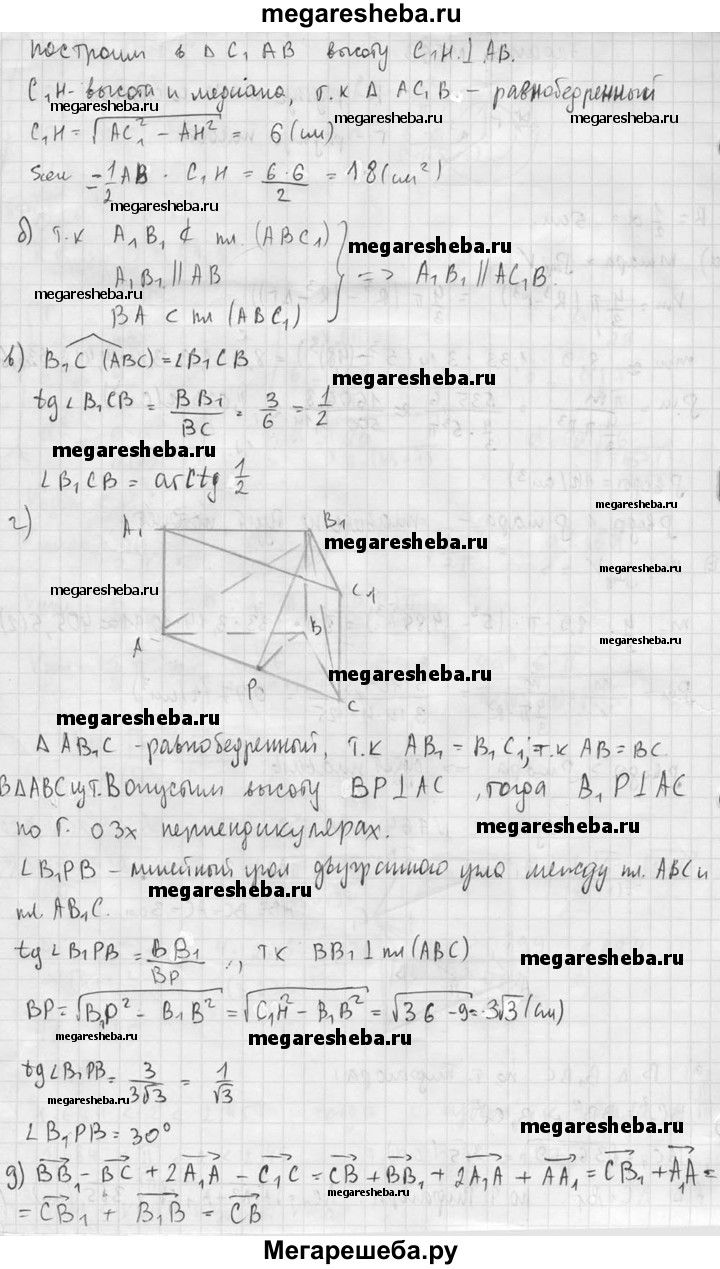 megaresheba.ru
построим в Δ C₁ AB высоту C₁H ⊥ AB.
C₁H - высота и медиана, т.к Δ AC₁B - равнобедренный
megaresheba.ru megaresheba.ru
C₁H = √(AC₁² - AH²) = 6 (см)
megaresheba.ru megaresheba.ru
Sсеч = 1/2 AB · C₁H = 6·6/2 = 18 (см²)
megaresheba.ru
б) т.к A₁B₁ ⊄ пл. (ABC₁)
megaresheba.ru
A₁B₁ || AB => A₁B₁ || AC₁B.
megaresheba.ru
BA ⊂ пл (ABC₁)
в) B₁C (ABC) = ∠B₁CB
megaresheba.ru
tg ∠B₁CB = BB₁/BC = 3/6 = 1/2
megaresheba.ru
∠B₁CB = arctg 1/2
megaresheba.ru
г) A₁ B₁
megaresheba.ru
megaresheba.ru C₁
A B
megaresheba.ru
megaresheba.ru
P C
megaresheba.ru
Δ AB₁C - равнобедренный, т.к AB₁ = B₁C₁; т.к AB = BC.
В ΔABC из т.B опустим высоту BP ⊥ AC, тогда B₁P ⊥ AC
по т. о 3х перпендикулярах.
megaresheba.ru
∠B₁PB - линейный угол двугранного угла между пл. ABC и
megaresheba.ru
пл. AB₁C.
tg ∠B₁PB = BB₁/BP, тк BB₁ ⊥ пл (ABC)
megaresheba.ru
BP = √(B₁P² - B₁B²) = √(C₁H² - B₁B²) = √(36 - 9) = 3√3 (см)
megaresheba.ru megaresheba.ru
tg ∠B₁PB = 3/3√3 = 1/√3
megaresheba.ru megaresheba.ru
∠B₁PB = 30°
д) BB₁ - BC + 2A₁A - C₁C = CB + BB₁ + 2A₁A + AA₁ = CB₁ + A₁A =
= CB₁ + B₁B = CB
Мегарешеба.ру